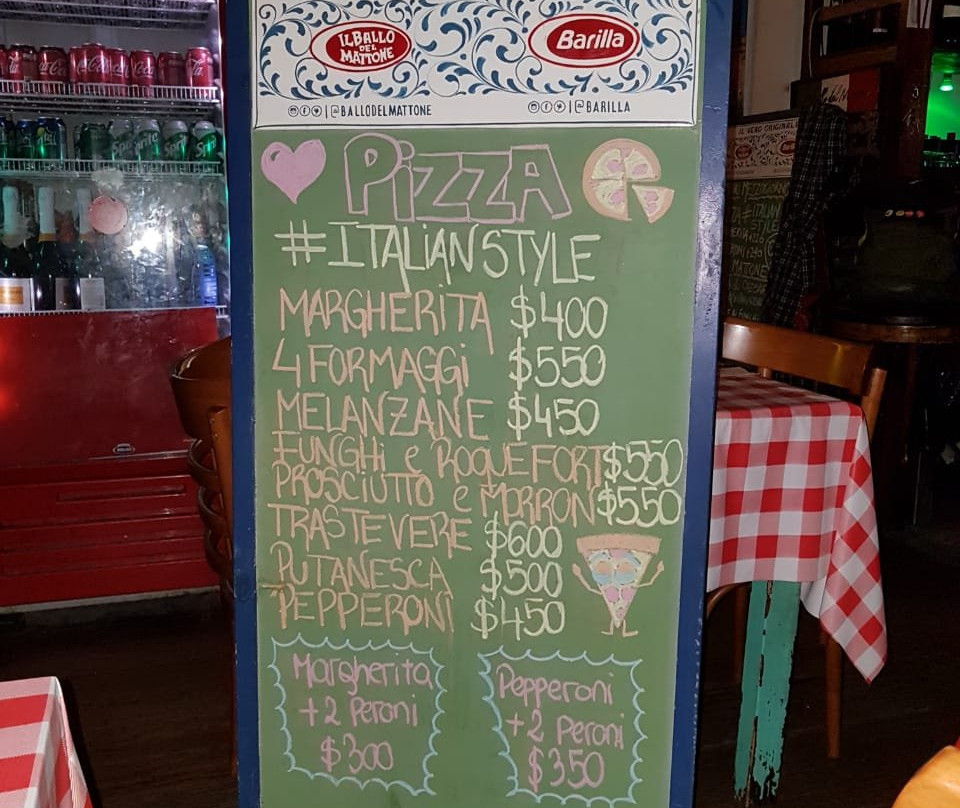 IL BALLO
DEL
MATTONE
Barilla
|@BALLODELMATTONE
|@BARILLA
PiZZA
#ITALiANSTYLE
MARGHERITA $400
4 FORMAGGi $550
MELANZANE $450
FUNGHi e ROQUEFORT $550
PROSCIUTTO e MORRON $550
TRASTEVERE $600
PUTANESCA $500
PEPPERONI $450
Margherita
+2 Peroni
$300
Pepperoni
+2 Peroni
$350